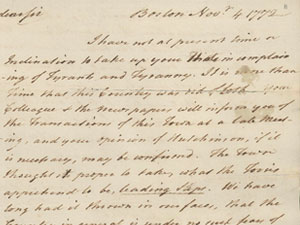 dear Sir Boston Novr 4 1772
I have not at present time or
Inclination to take up your Time in complain
ing of Tyrants and Tyranny. It is more than
Time that this Country was rid of both. Your
Colleague & the Newspapers will inform you of
the Transactions of this Town at a late Meet
ing, and your opinion of Hutchinson, if it
is necessary, may be confirmed. The Town
thought it proper to take, what the Tories
apprehend to be leading Steps. We have
long had it thrown in our faces, that the
Country in general is under no such fears of